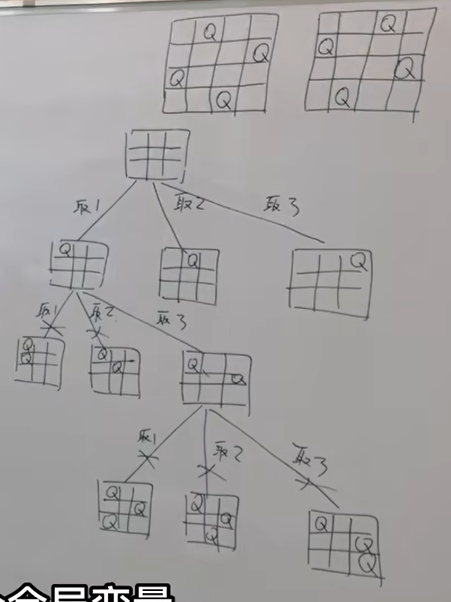 Q Q
Q Q
Q Q
Q Q
取1 取2 取3
Q Q Q
取1 取2 取3
Q Q Q
Q Q Q
取1 取2 取3
Q Q Q
Q Q Q
Q Q Q
全局变量